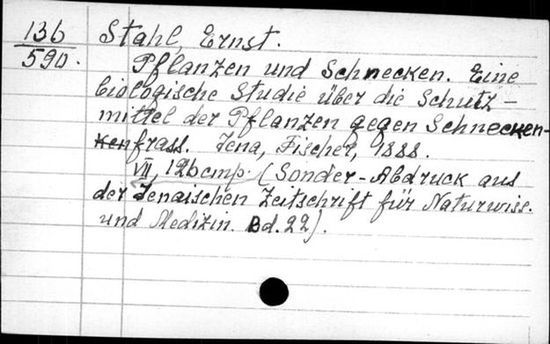 136 Stahl, Ernst.
590. Pflanzen und Schnecken. Eine
biologische Studie über die Schutz-
mittel der Pflanzen gegen Schnecken-
kenfrass. Jena, Fischer, 1888.
VII, 126 стр. (Sonder-Abdruck aus
der Jenaischen Zeitschrift für Naturwiss.
und Medizin. Bd. 22).